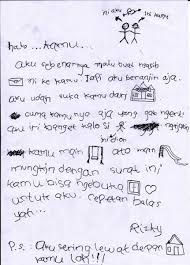 ini aku ini kamu
halo...kamu...
aku sebenarnya malu buat ngasih
ini ke kamu. Tapi aku beraniin aja.
aku udah suka kamu dari
cuma kamunya aja yang gak ngerti
aku ini banget kalo si
kamu main ato main
mungkin dengan surat ini
kamu bisa ngebuka
untuk aku. Cepetan balas
yah...
Rizky
P.s: Aku sering lewat depan
kamu loh!!!